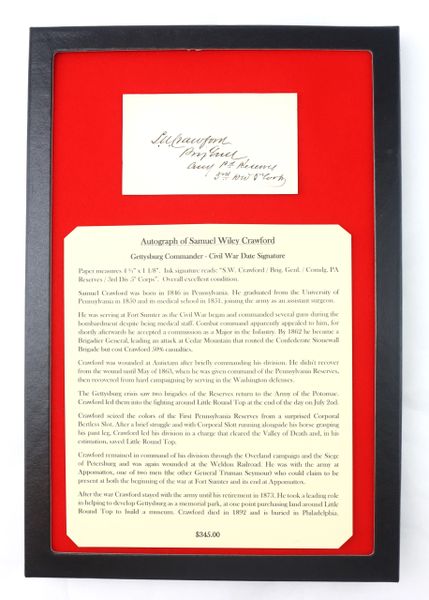 S.W. Crawford
Brig Genl
Comg Pa Reserves
3rd Div 5 Corps
Autograph of Samuel Wiley Crawford
Gettysburg Commander - Civil War Date Signature
Paper measures 4 ½" x 1 1/8". Ink signature reads: "S.W. Crawford / Brig. Genl. / Comdg. PA
Reserves / 3rd Div 5th Corps". Overall excellent condition.
Samuel Crawford was born in 1846 in Pennsylvania. He graduated from the University of
Pennsylvania in 1850 and its medical school in 1851, joining the army as an assistant surgeon.
He was serving at Fort Sumter as the Civil War began and commanded several guns during the
bombardment despite being medical staff. Combat command apparently appealed to him, for
shortly afterwards he accepted a commission as a Major in the Infantry. By 1862 he became a
Brigadier General, leading an attack at Cedar Mountain that routed the Confederate Stonewall
Brigade but cost Crawford 50% casualties.
Crawford was wounded at Antietam after briefly commanding his division. He didn't recover
from the wound until May of 1863, when he was given command of the Pennsylvania Reserves,
then recovered from hard campaigning by serving in the Washington defenses.
The Gettysburg crisis saw two brigades of the Reserves return to the Army of the Potomac.
Crawford led them into the fighting around Little Round Top at the end of the day on July 2nd.
Crawford seized the colors of the First Pennsylvania Reserves from a surprised Corporal
Bertless Slot. After a brief struggle and with Corporal Slott running alongside his horse grasping
his pant leg, Crawford led his division in a charge that cleared the Valley of Death and, in his
estimation, saved Little Round Top.
Crawford remained in command of his division through the Overland campaign and the Siege
of Petersburg and was again wounded at the Weldon Railroad. He was with the army at
Appomattox, one of two men (the other General Truman Seymour) who could claim to be
present at both the beginning of the war at Fort Sumter and its end at Appomattox.
After the war Crawford stayed with the army until his retirement in 1873. He took a leading role
in helping to develop Gettysburg as a memorial park, at one point purchasing land around Little
Round Top to build a museum. Crawford died in 1892 and is buried in Philadelphia.
$345.00